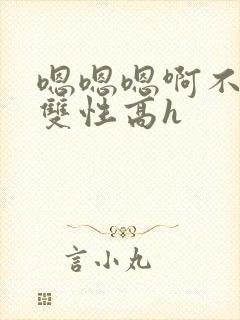 嗯嗯嗯啊不
雙性高h
言小丸